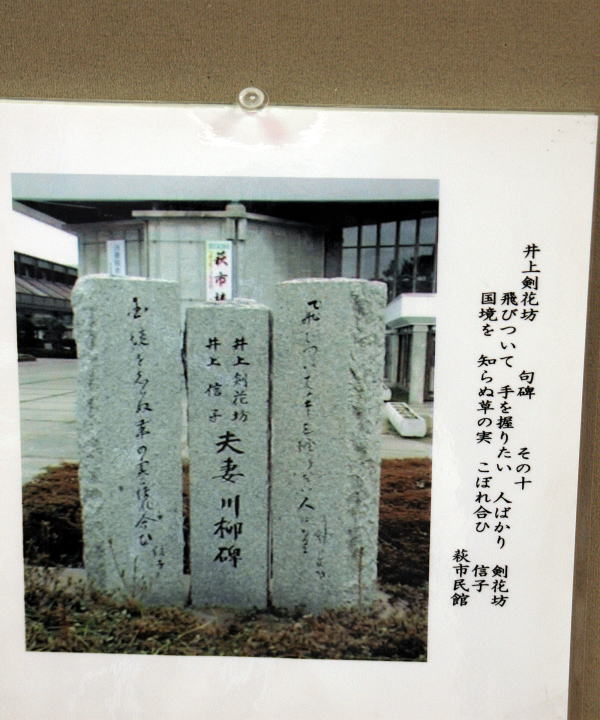 井上剣花坊　句碑　その十
飛びついて　手を握りたい　人ばかり　剣花坊
国境を　知らぬ草の実　こぼれ合ひ　信子
萩市民館
飛びついて手を握りたい人ばかり
井上剣花坊
井上信子
夫妻川柳碑
国境を知らぬ草の実こぼれ合ひ 信子
萩市